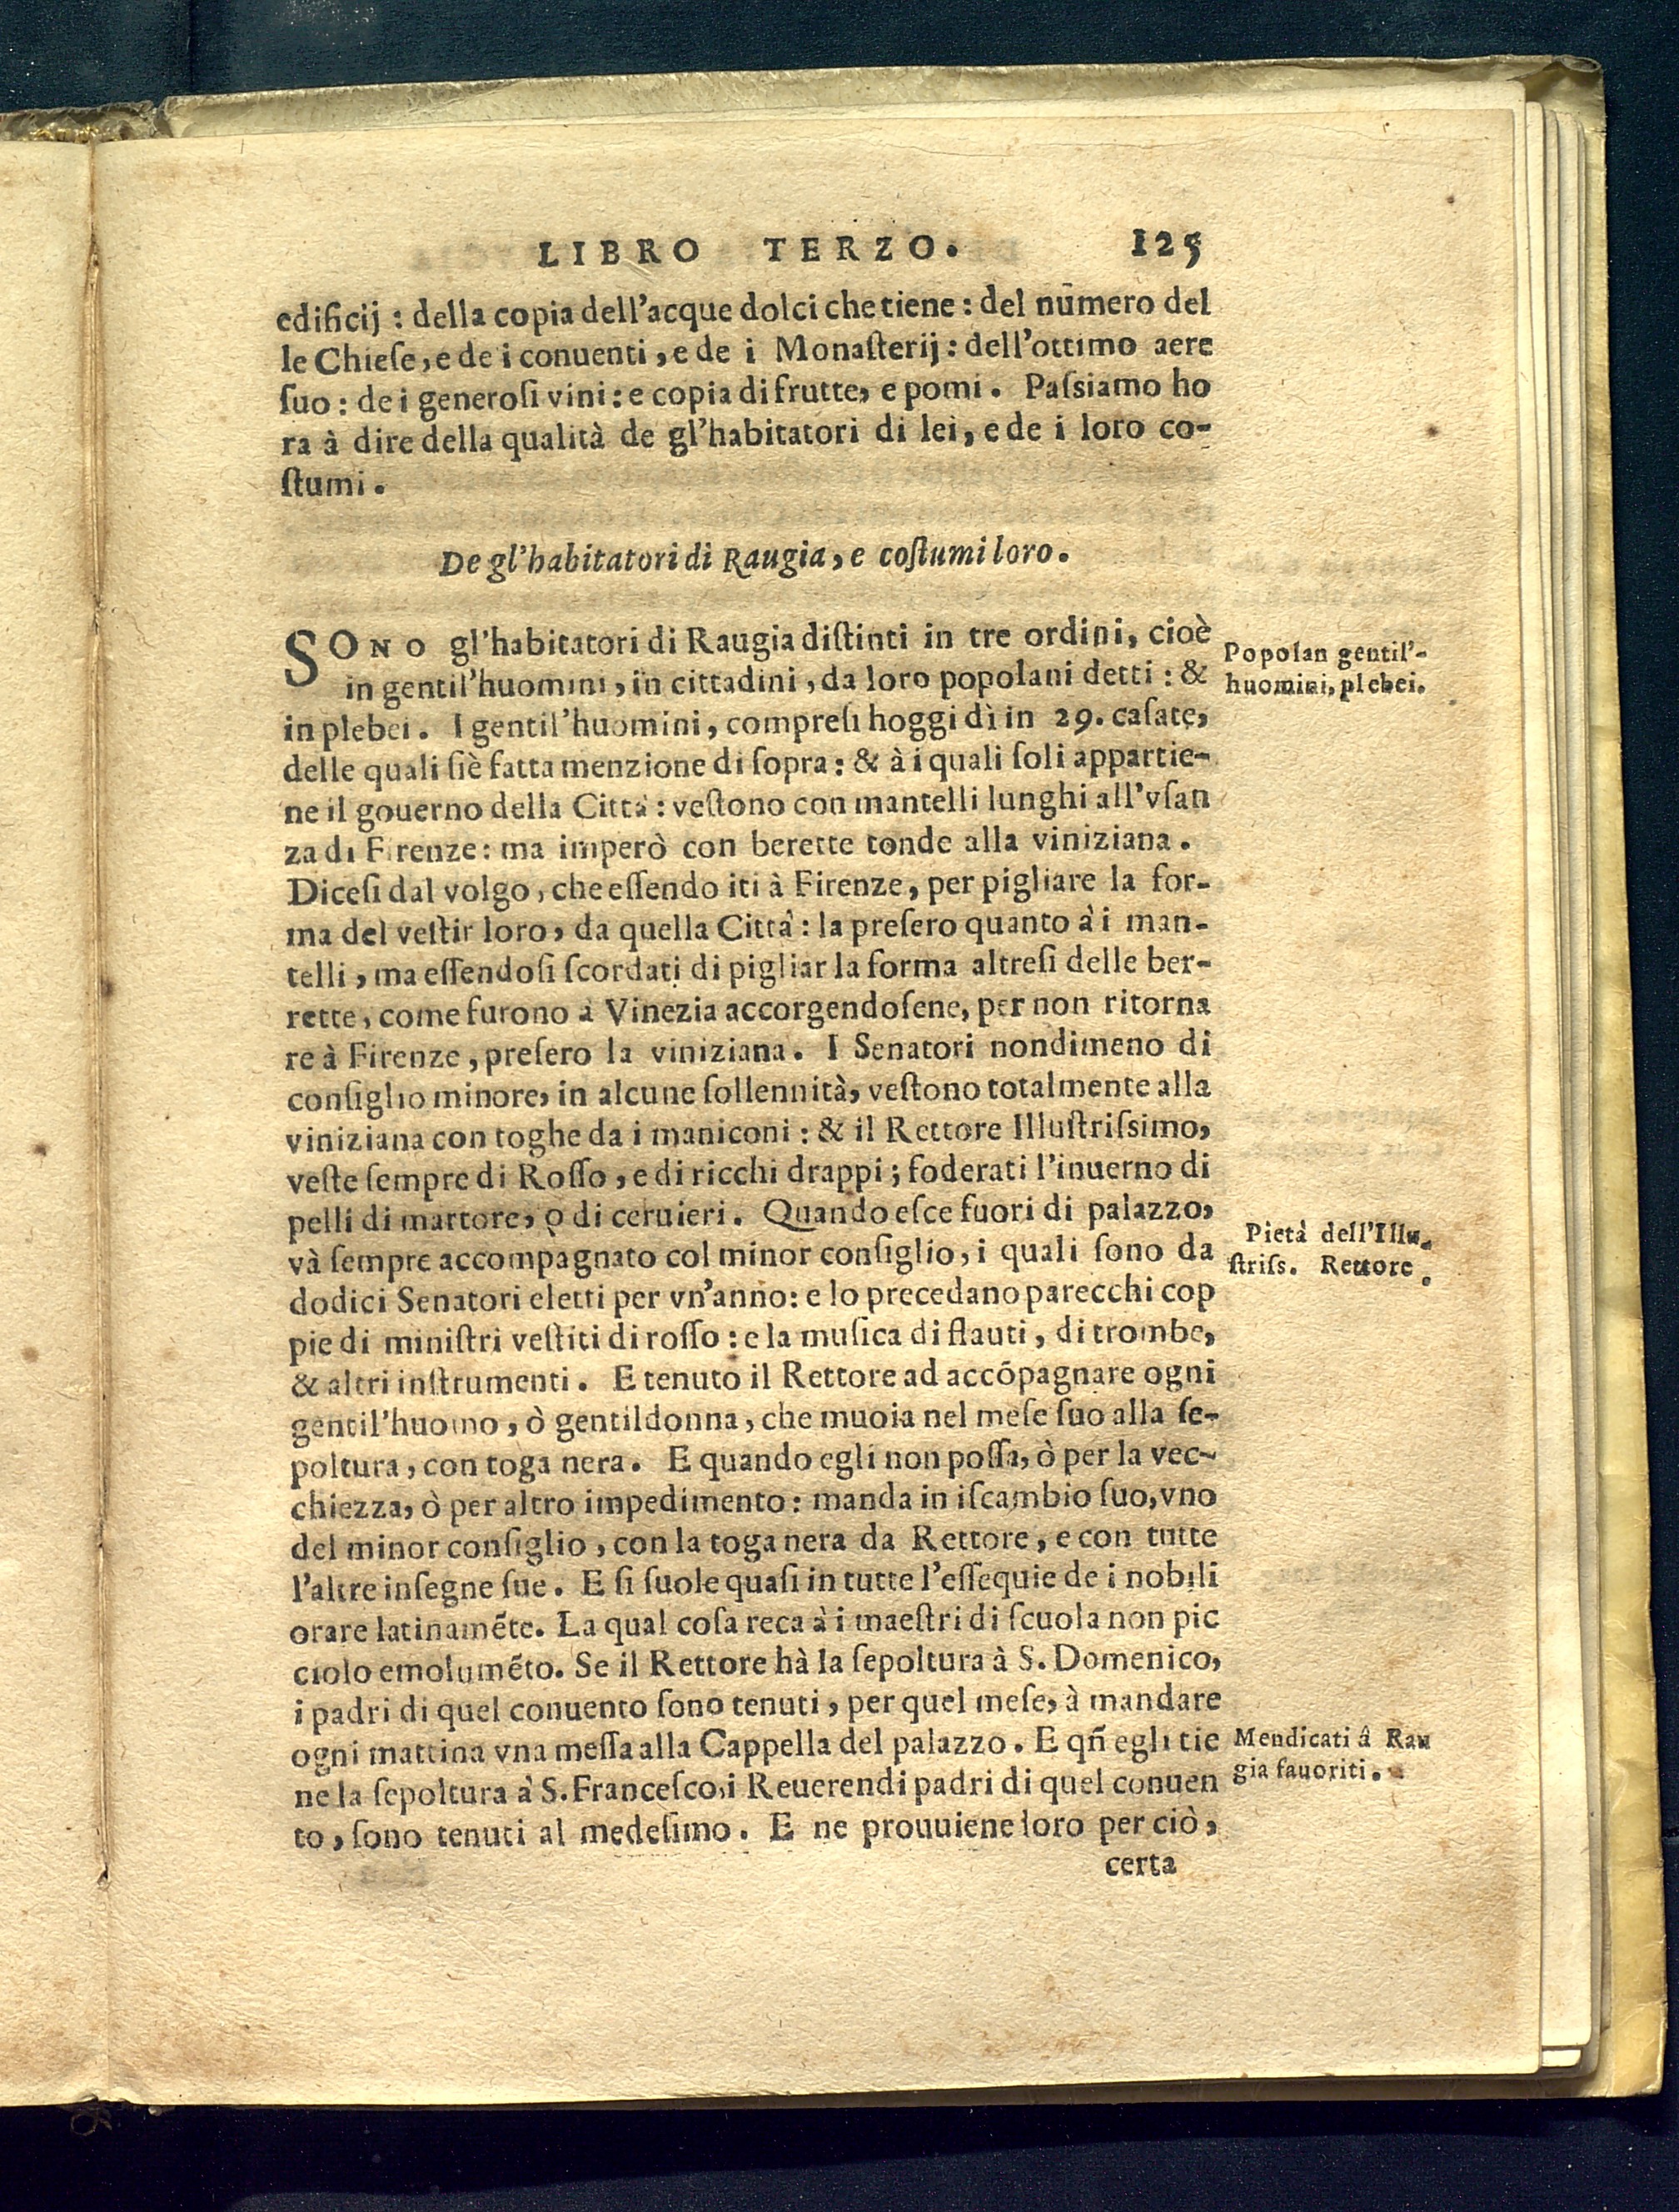 LIBRO TERZO. 125
edificij : della copia dell'acque dolci che tiene : del nūmero del
le Chieſe, e de i conuenti, e de i Monaſterij : dell'ottimo aere
ſuo : de i generoſi vini : e copia di frutte, e pomi. Paſsiamo ho
ra à dire della qualità de gl'habitatori di lei, e de i loro co-
ſtumi.
De gl'habitatori di Raugia, e coſtumi loro.
SONO gl'habitatori di Raugia diſtinti in tre ordini, cioè
in gentil'huomini, in cittadini, da loro popolani detti : &
in plebei. I gentil'huomini, compreſi hoggi dì in 29. caſate,
delle quali ſiè fatta menzione di ſopra : & à i quali ſoli appartie-
ne il gouerno della Città : veſtono con mantelli lunghi all'vſan
za di Firenze : ma imperò con berette tonde alla viniziana.
Diceſi dal volgo, che eſſendo iti à Firenze, per pigliare la for-
ma del veſtir loro, da quella Città : la preſero quanto à i man-
telli, ma eſſendoſi ſcordati di pigliar la forma altreſi delle ber-
rette, come furono à Vinezia accorgendoſene, per non ritorna
re à Firenze, preſero la viniziana. I Senatori nondimeno di
conſiglio minore, in alcune ſollennità, veſtono totalmente alla
viniziana con toghe da i maniconi : & il Rettore Illuſtriſsimo,
veſte ſempre di Roſſo, e di ricchi drappi ; foderati l'inuerno di
pelli di martore, o di ceruieri. Quando eſce fuori di palazzo,
và ſempre accompagnato col minor conſiglio, i quali ſono da
dodici Senatori eletti per vn'anno : e lo precedano parecchi cop
pie di miniſtri veſtiti di roſſo : e la muſica di flauti, di trombe,
& altri inſtrumenti. E tenuto il Rettore ad accōpagnare ogni
gentil'huomo, ò gentildonna, che muoia nel meſe ſuo alla ſe-
poltura, con toga nera. E quando egli non poſſa, ò per la vec-
chiezza, ò per altro impedimento : manda in iſcambio ſuo, vno
del minor conſiglio, con la toga nera da Rettore, e con tutte
l'altre inſegne ſue. E ſi ſuole quaſi in tutte l'eſſequie de i nobili
orare latinamēte. La qual coſa reca à i maeſtri di ſcuola non pic
ciolo emolumēto. Se il Rettore hà la ſepoltura à S. Domenico,
i padri di quel conuento ſono tenuti, per quel meſe, à mandare
ogni mattina vna meſſa alla Cappella del palazzo. E qñ egli tie
ne la ſepoltura à S. Franceſco, i Reuerendi padri di quel conuen
to, ſono tenuti al medeſimo. E ne prouuiene loro per ciò,
certa
Popolan gentil'-
huomini, plebei.
Pietà dell'Illu-
ſtriſs. Rettore.
Mendicati â Rau
gia fauoriti.